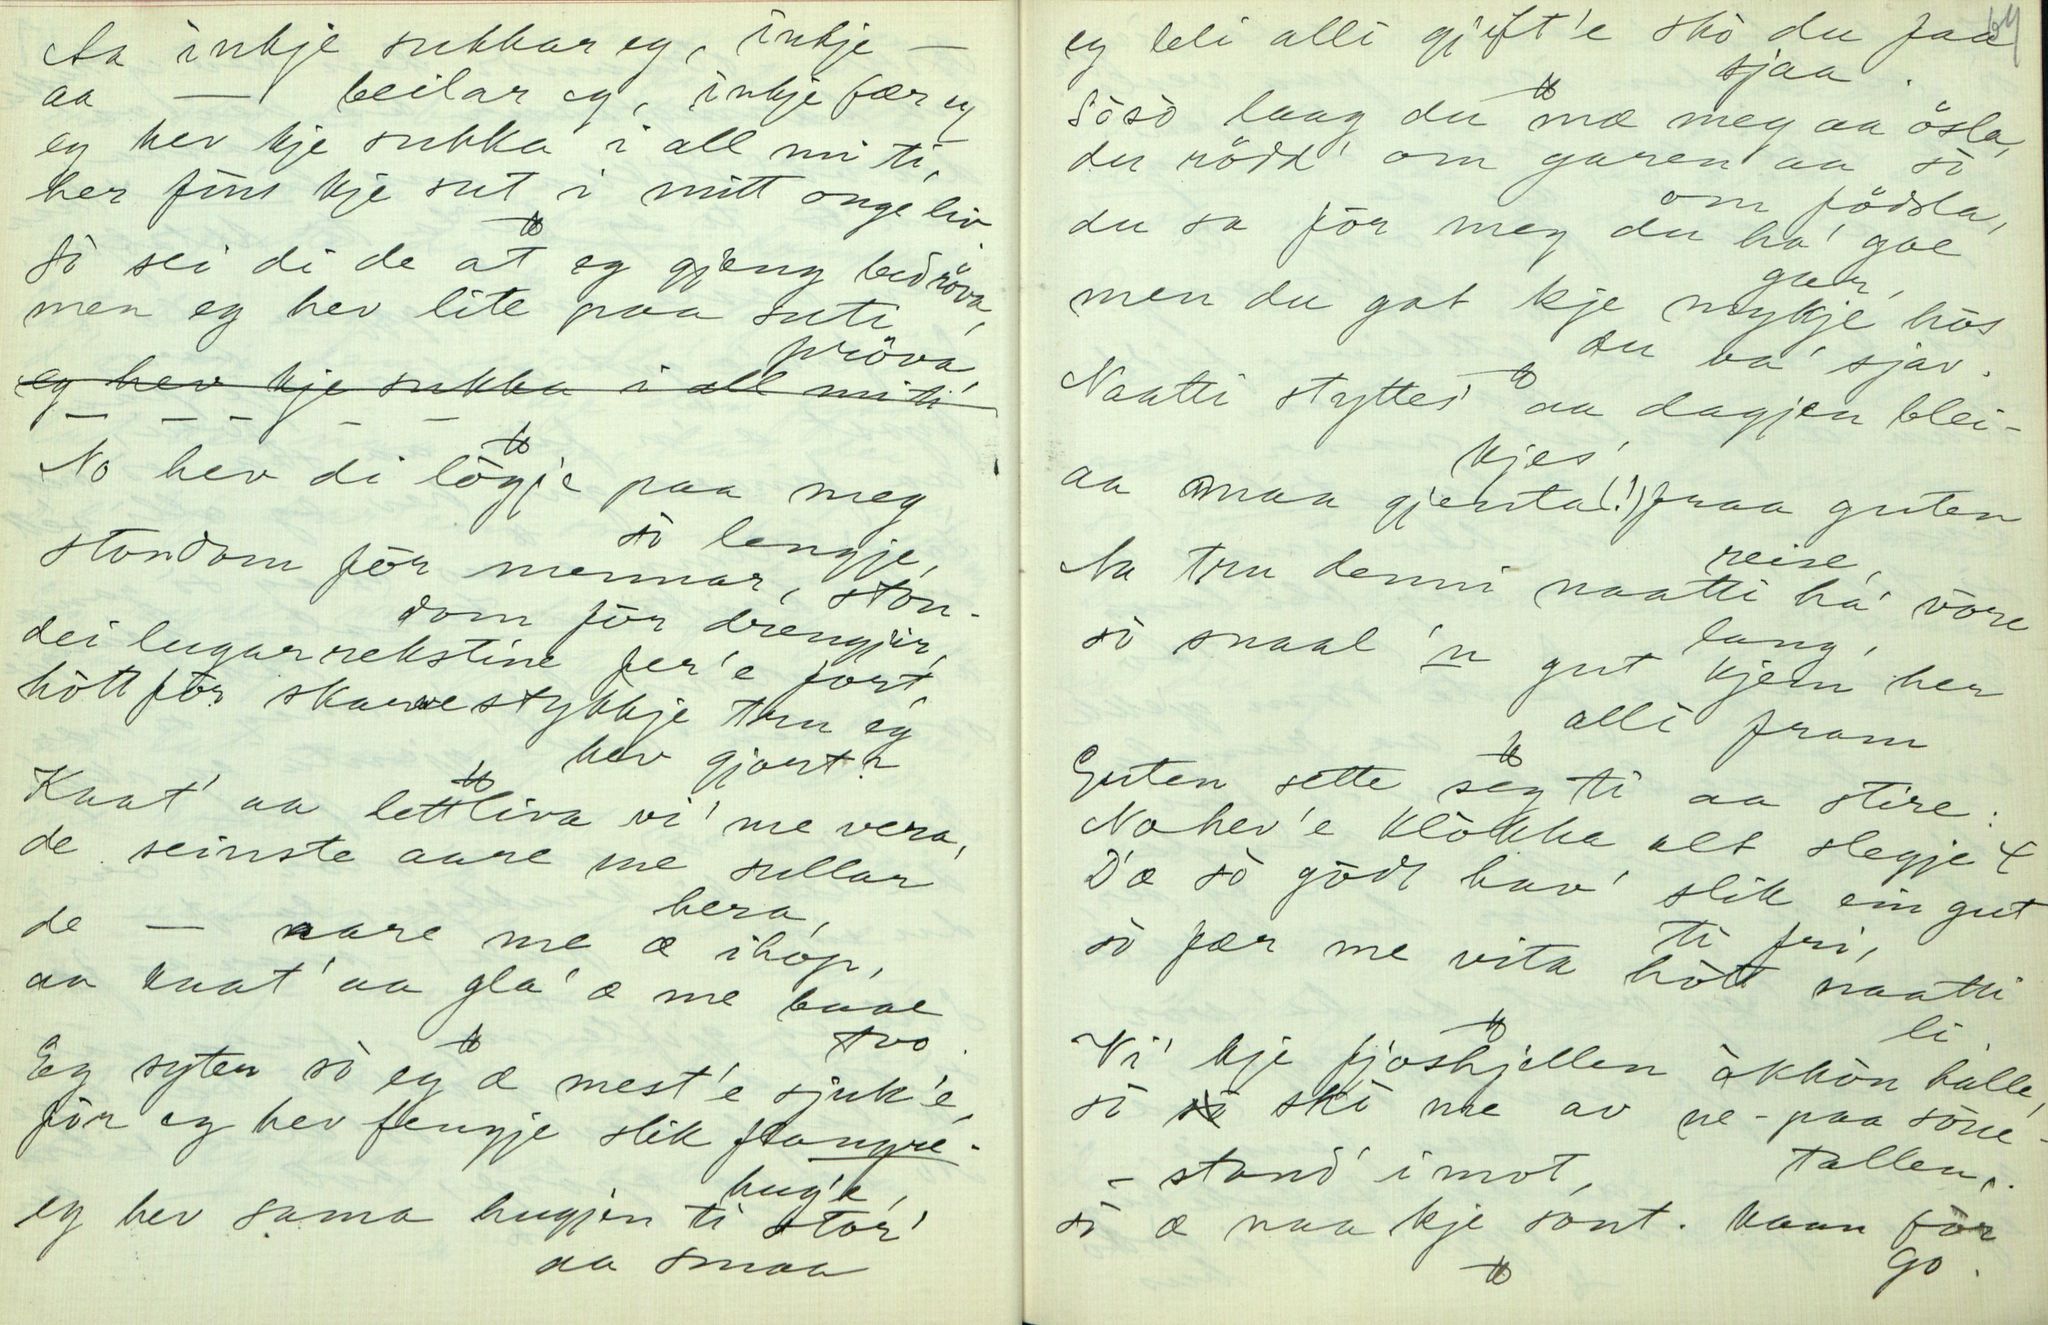 Aa inkje sukkar eg, inkje —
aa — beilar eg, inkje fær eg
eg hev kje sukka i all mi ti,
her fins kje sut i mitt onge liv.
Sò sei di de at eg gjeng bedröva,
men eg hev lite paa suti
pröva,
eg hev kje sukka i all mi ti
— — — — — —
No hev di lögje paa meg
sò lengje,
stondom för mennar, ston-
dom för drengjir,
dei lugarrekstine fer'e fort,
hött för skarvestykkje tru eg
hev gjort?
Kaat' aa lettliva vi' me vera,
de seinste aare me sullar
hera,
de — aare me æ ihop,
aa kaat' aa gla' æ me baae
tvo.
Eg syter sò eg æ mest'e sjuk'e,
för eg hev fengje slik frangre-
hug'e,
eg hev sama hugjen ti stor'
aa smaa
64
eg bli alli gjift'e skò du faa
sjaa.
Sòsò laag du mæ meg aa ösla,
du rödd' om garen aa sò
om födsla,
du sa för meg du ha' goe
gar,
men du gat kje mykje hòs
du va' sjav.
Naatti styttes' aa dagjen blei-
kjes'
aa maa gjenta(!) fraa guten
reise,
Aa tru denni naatti ha' vore
lang,
sò snaal 'n gut kjem her
alli fram
Guten sette seg ti aa stire:
No hev'e klòkka alt slegje 4
D'æ sò gödt hav' slik ein gut
ti fri,
sò fær me vita hött naatti
li.
Vi' kje fjoshjellen òkkòn halle,
sò skò me av ne-paa sòne-
tallen,
- stond' imot,
sò æ naa kje sont. kaan för
go.